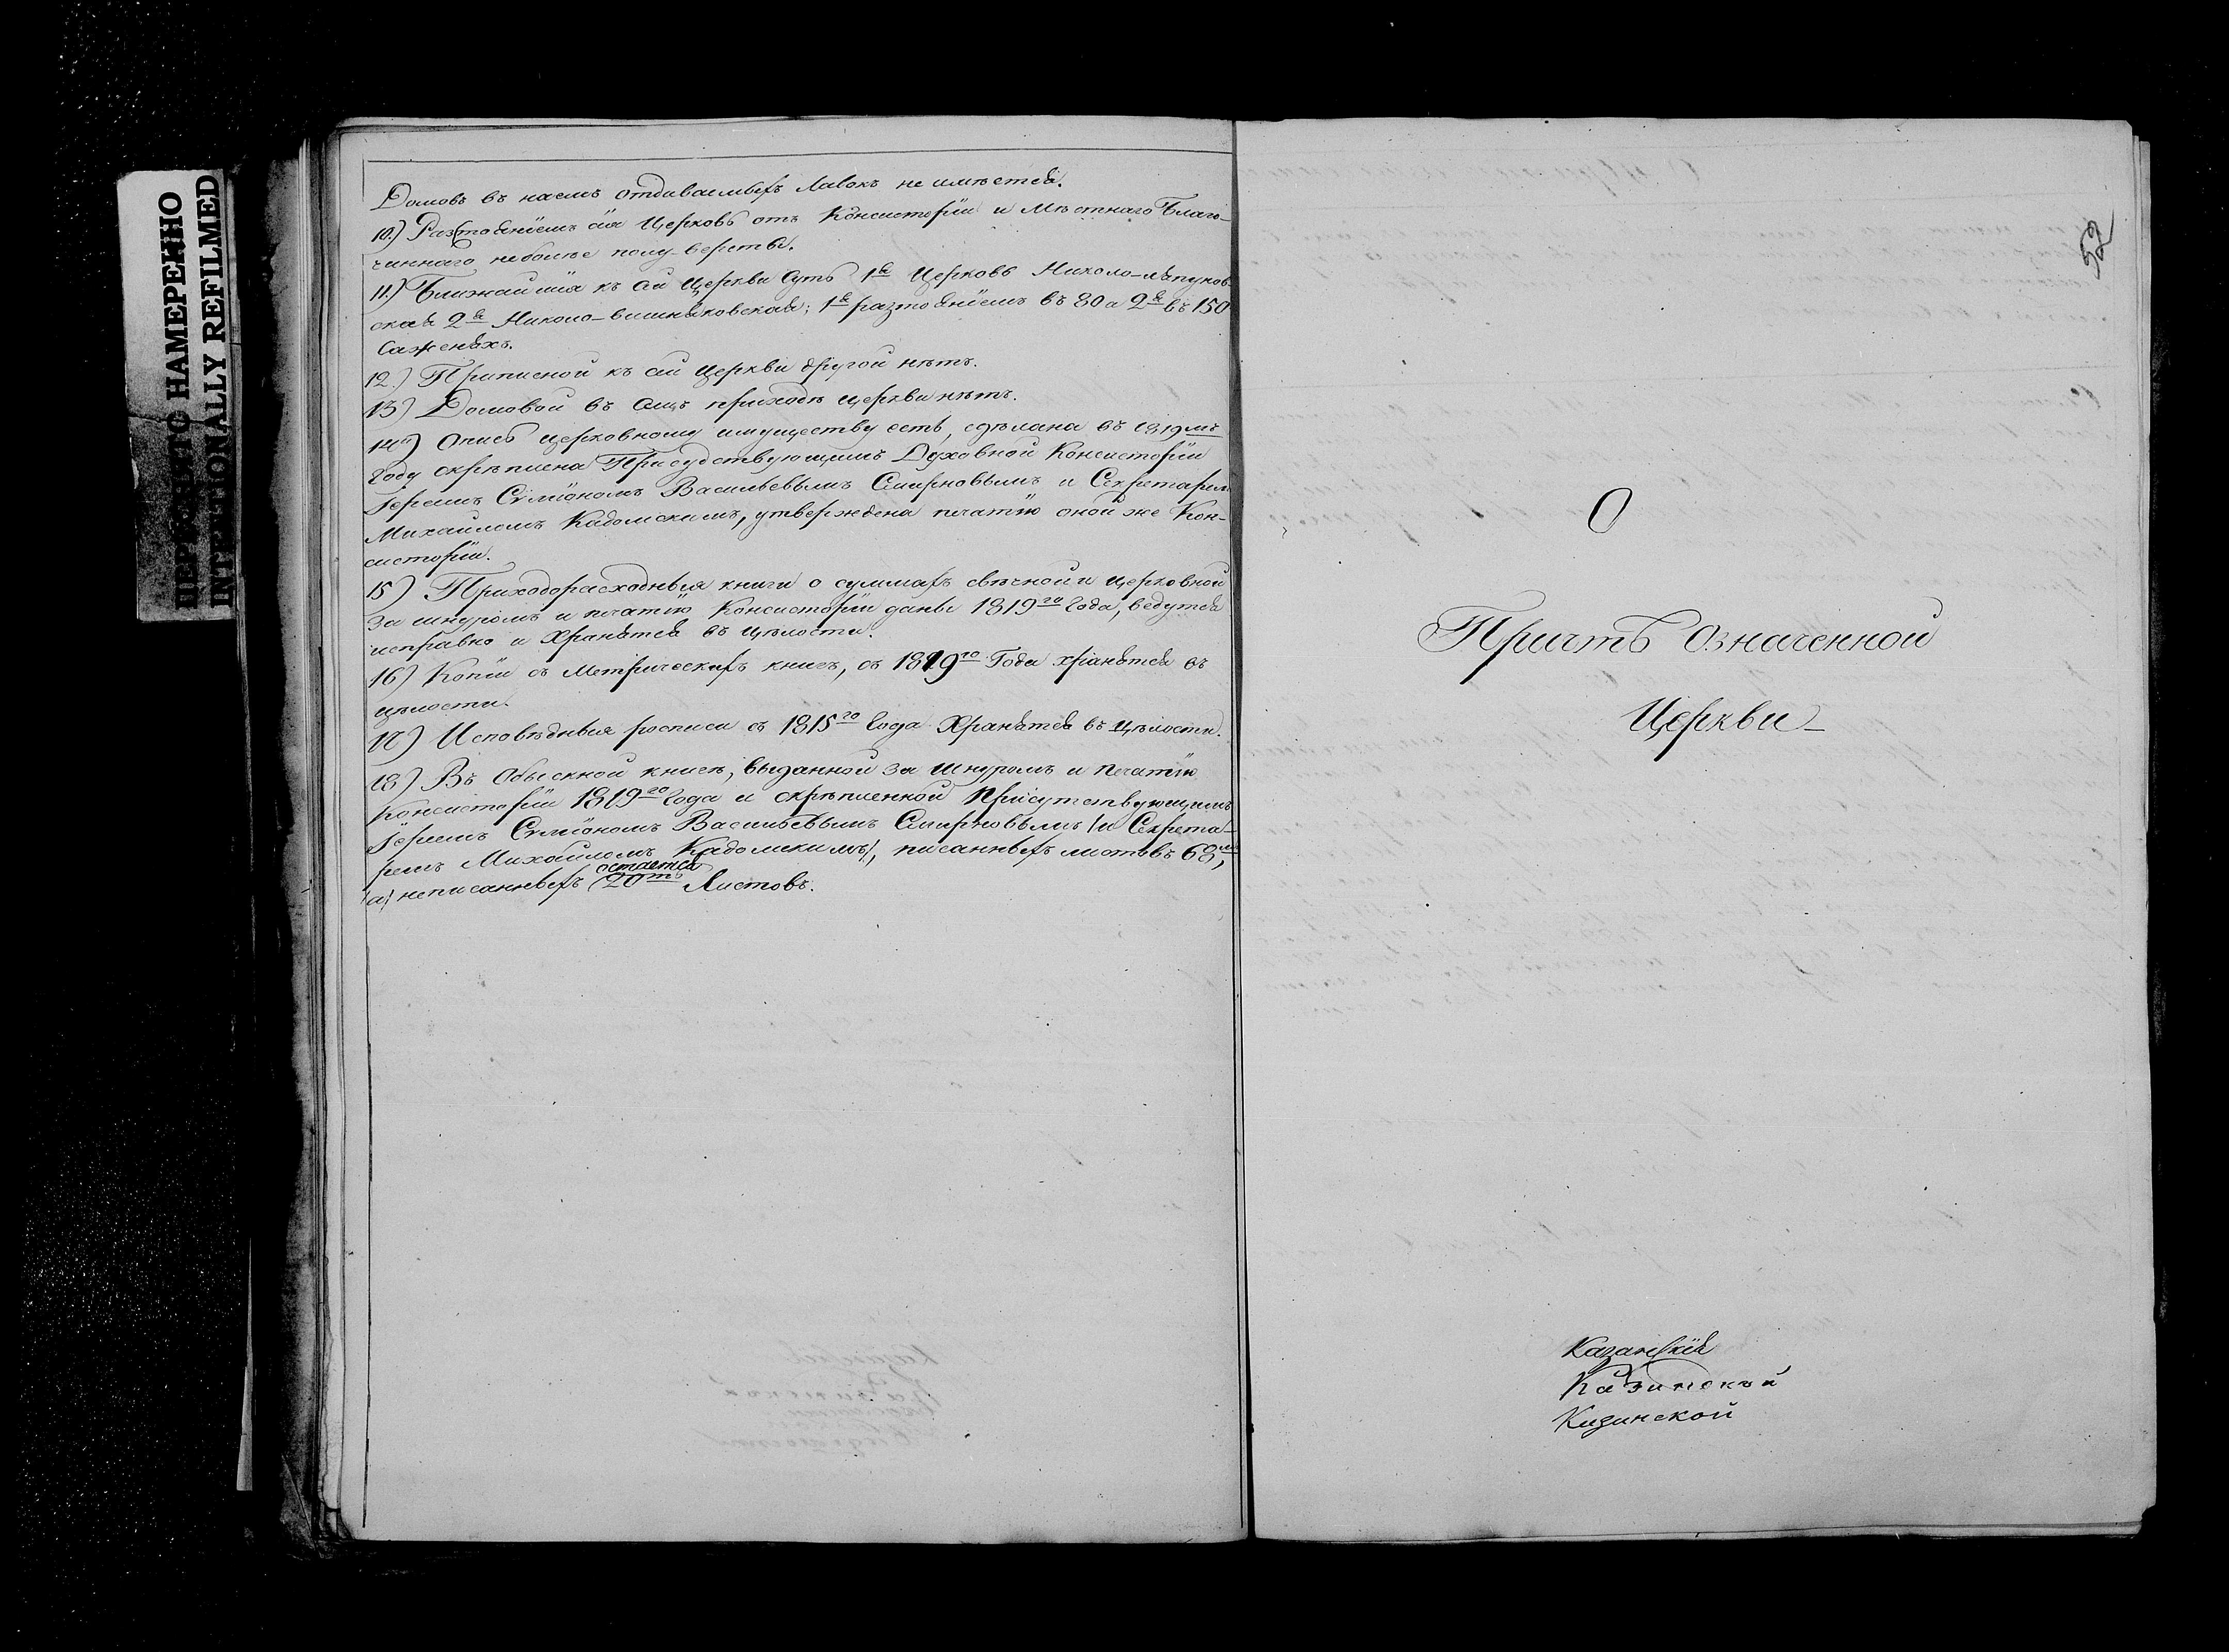 ПЕРЕСНЯТО НАМЕРЕННО
INTENTIONALLY REFILMED
Домовъ въ наемъ отдаваемыхъ лавокъ не имѣется.
10.) Разстояніемъ сія Церковь отъ Консисторіи и Мѣстнаго Благо-
чиннаго неболѣе полу-версты.
11.) Ближайшія къ сей Церкви суть 1я Церковь Николо-
ская 2я Николо-вишняковская; 1я разтояніемъ въ 80 а 2я въ 150
Саженяхъ.
12.) Приписной къ сей Церкви другой нѣтъ.
13) Домовой въ семъ приходѣ Церкви нѣтъ.
14) Опись церковному имуществу есть, сдѣлана въ 1819мъ
Году скрѣплена Присудствующимъ Духовной Консисторіи
Іереемъ Сѵмеономъ Васильевымъ Смирновымъ и Секретарем
Михайломъ Кадомскимъ, утверждена печатію оной же Кон-
систоріи.
15) Приходорасходныя книги о суммахъ свѣчной и Церковной
За шнуромъ и печатію Консисторіи даны 1819го Года, ведутся
исправно и Хранятся въ цѣлости.
16) Копіи съ Метрическихъ книгъ, съ 1819го Года хранятся въ
цѣлости.
17) Исповѣдныя росписи съ 1815го Года Хранятся въ Цѣлости.
18) Въ Обыскной книгѣ, выданной за Шнуромъ и Печатію
Консисторіи 1819го Года и скрѣпленной Присутствующимъ
Іереемъ Сѵмеономъ Васильевымъ Смирновымъ и Секрета-
ремъ Михайломъ Кадомскимъ, писанныхъ листовъ 68,
остается
а неписанныхъ 20ть Листовъ.
52
О
Причтѣ Означенной
Церкви